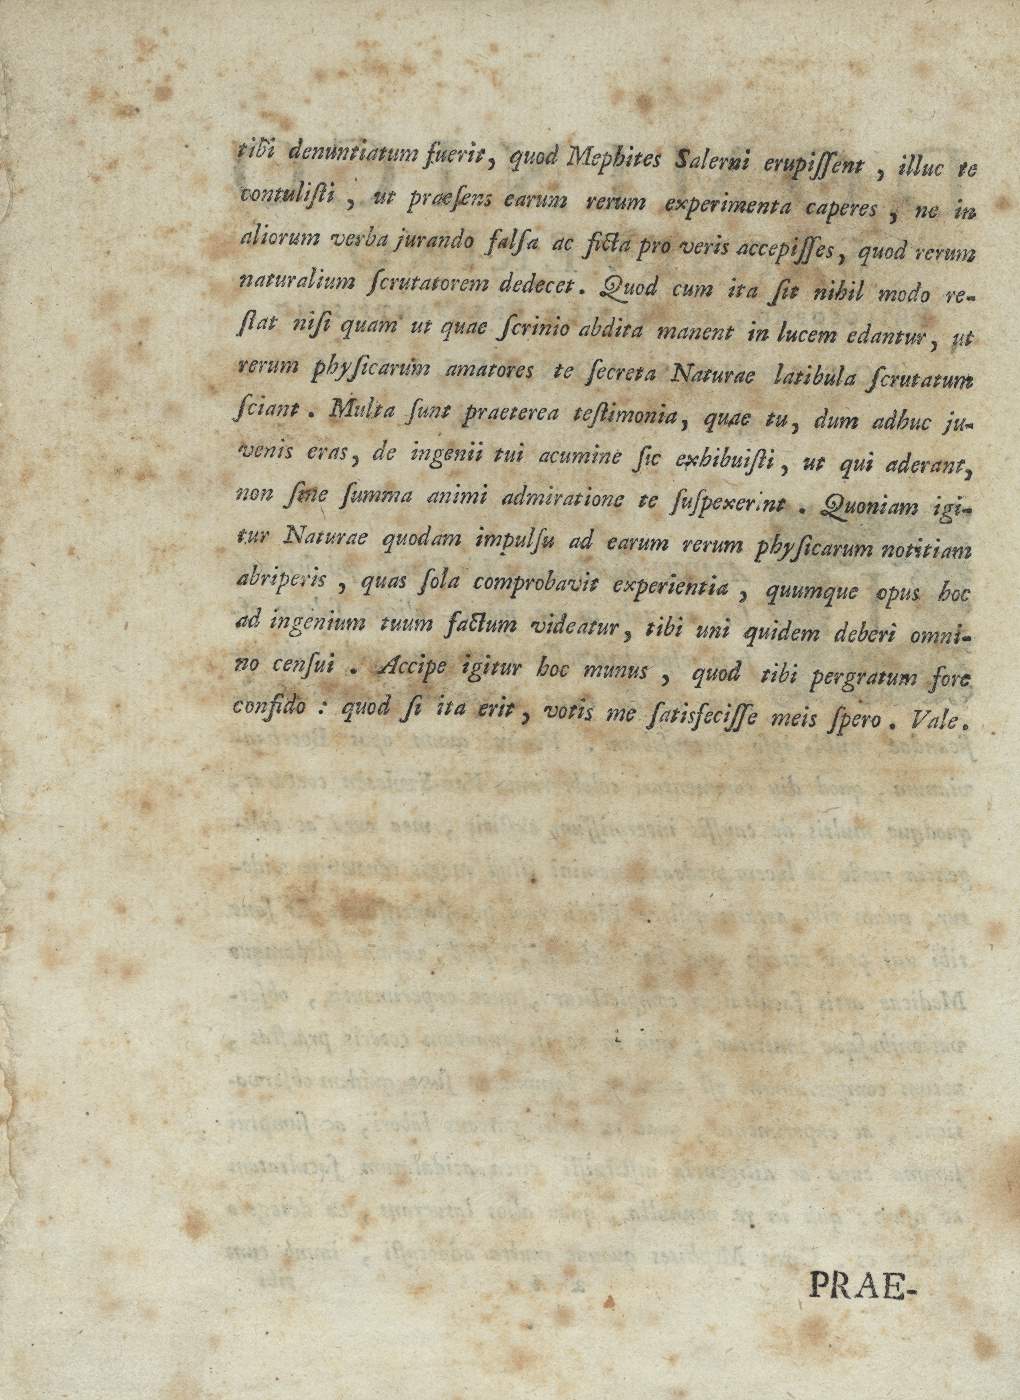 tibi denuntiatum fuerit, quod Mephites Salerni erupiſſent , illuc te
contuliſti , ut praeſens earum rerum experimenta caperes , ne in
aliorum verba jurando falſa ac ficta pro veris accepiſſes, quod rerum
naturalium ſcrutatorem dedecet. Quod cum ita ſit nihil modo re-
ſtat niſi quam ut quae ſcrinio abdita manent in lucem edantur, ut
rerum phyſicarum amatores te ſecreta Naturae latibula ſcrutatum
ſciant . Multa ſunt praeterea teſtimonia, quae tu, dum adhuc ju-
venis eras, de ingenii tui acumine ſic exhibuiſti, ut qui aderant,
non ſine ſumma animi admiratione te ſuſpexerint . Quoniam igi-
tur Naturae quodam impulſu ad earum rerum phyſicarum notitiam
abriperis , quas ſola comprobavit experientia , quumque opus hoc
ad ingenium tuum factum videatur, tibi uni quidem deberi omni-
no cenſui . Accipe igitur hoc munus , quod tibi pergratum fore
confido : quod ſi ita erit, votis me ſatisfeciſſe meis ſpero. Vale.
PRAE-